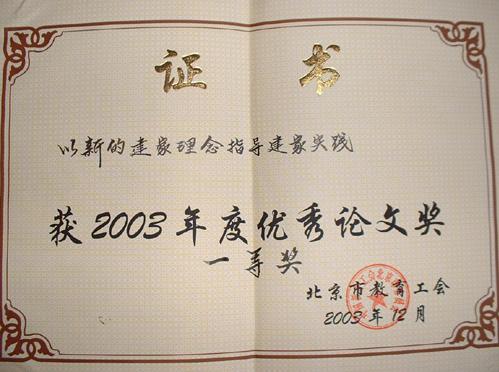 证书
以新的建家理念指导建家实践
获2003年度优秀论文奖
一等奖
北京市教育工会
2003年12月